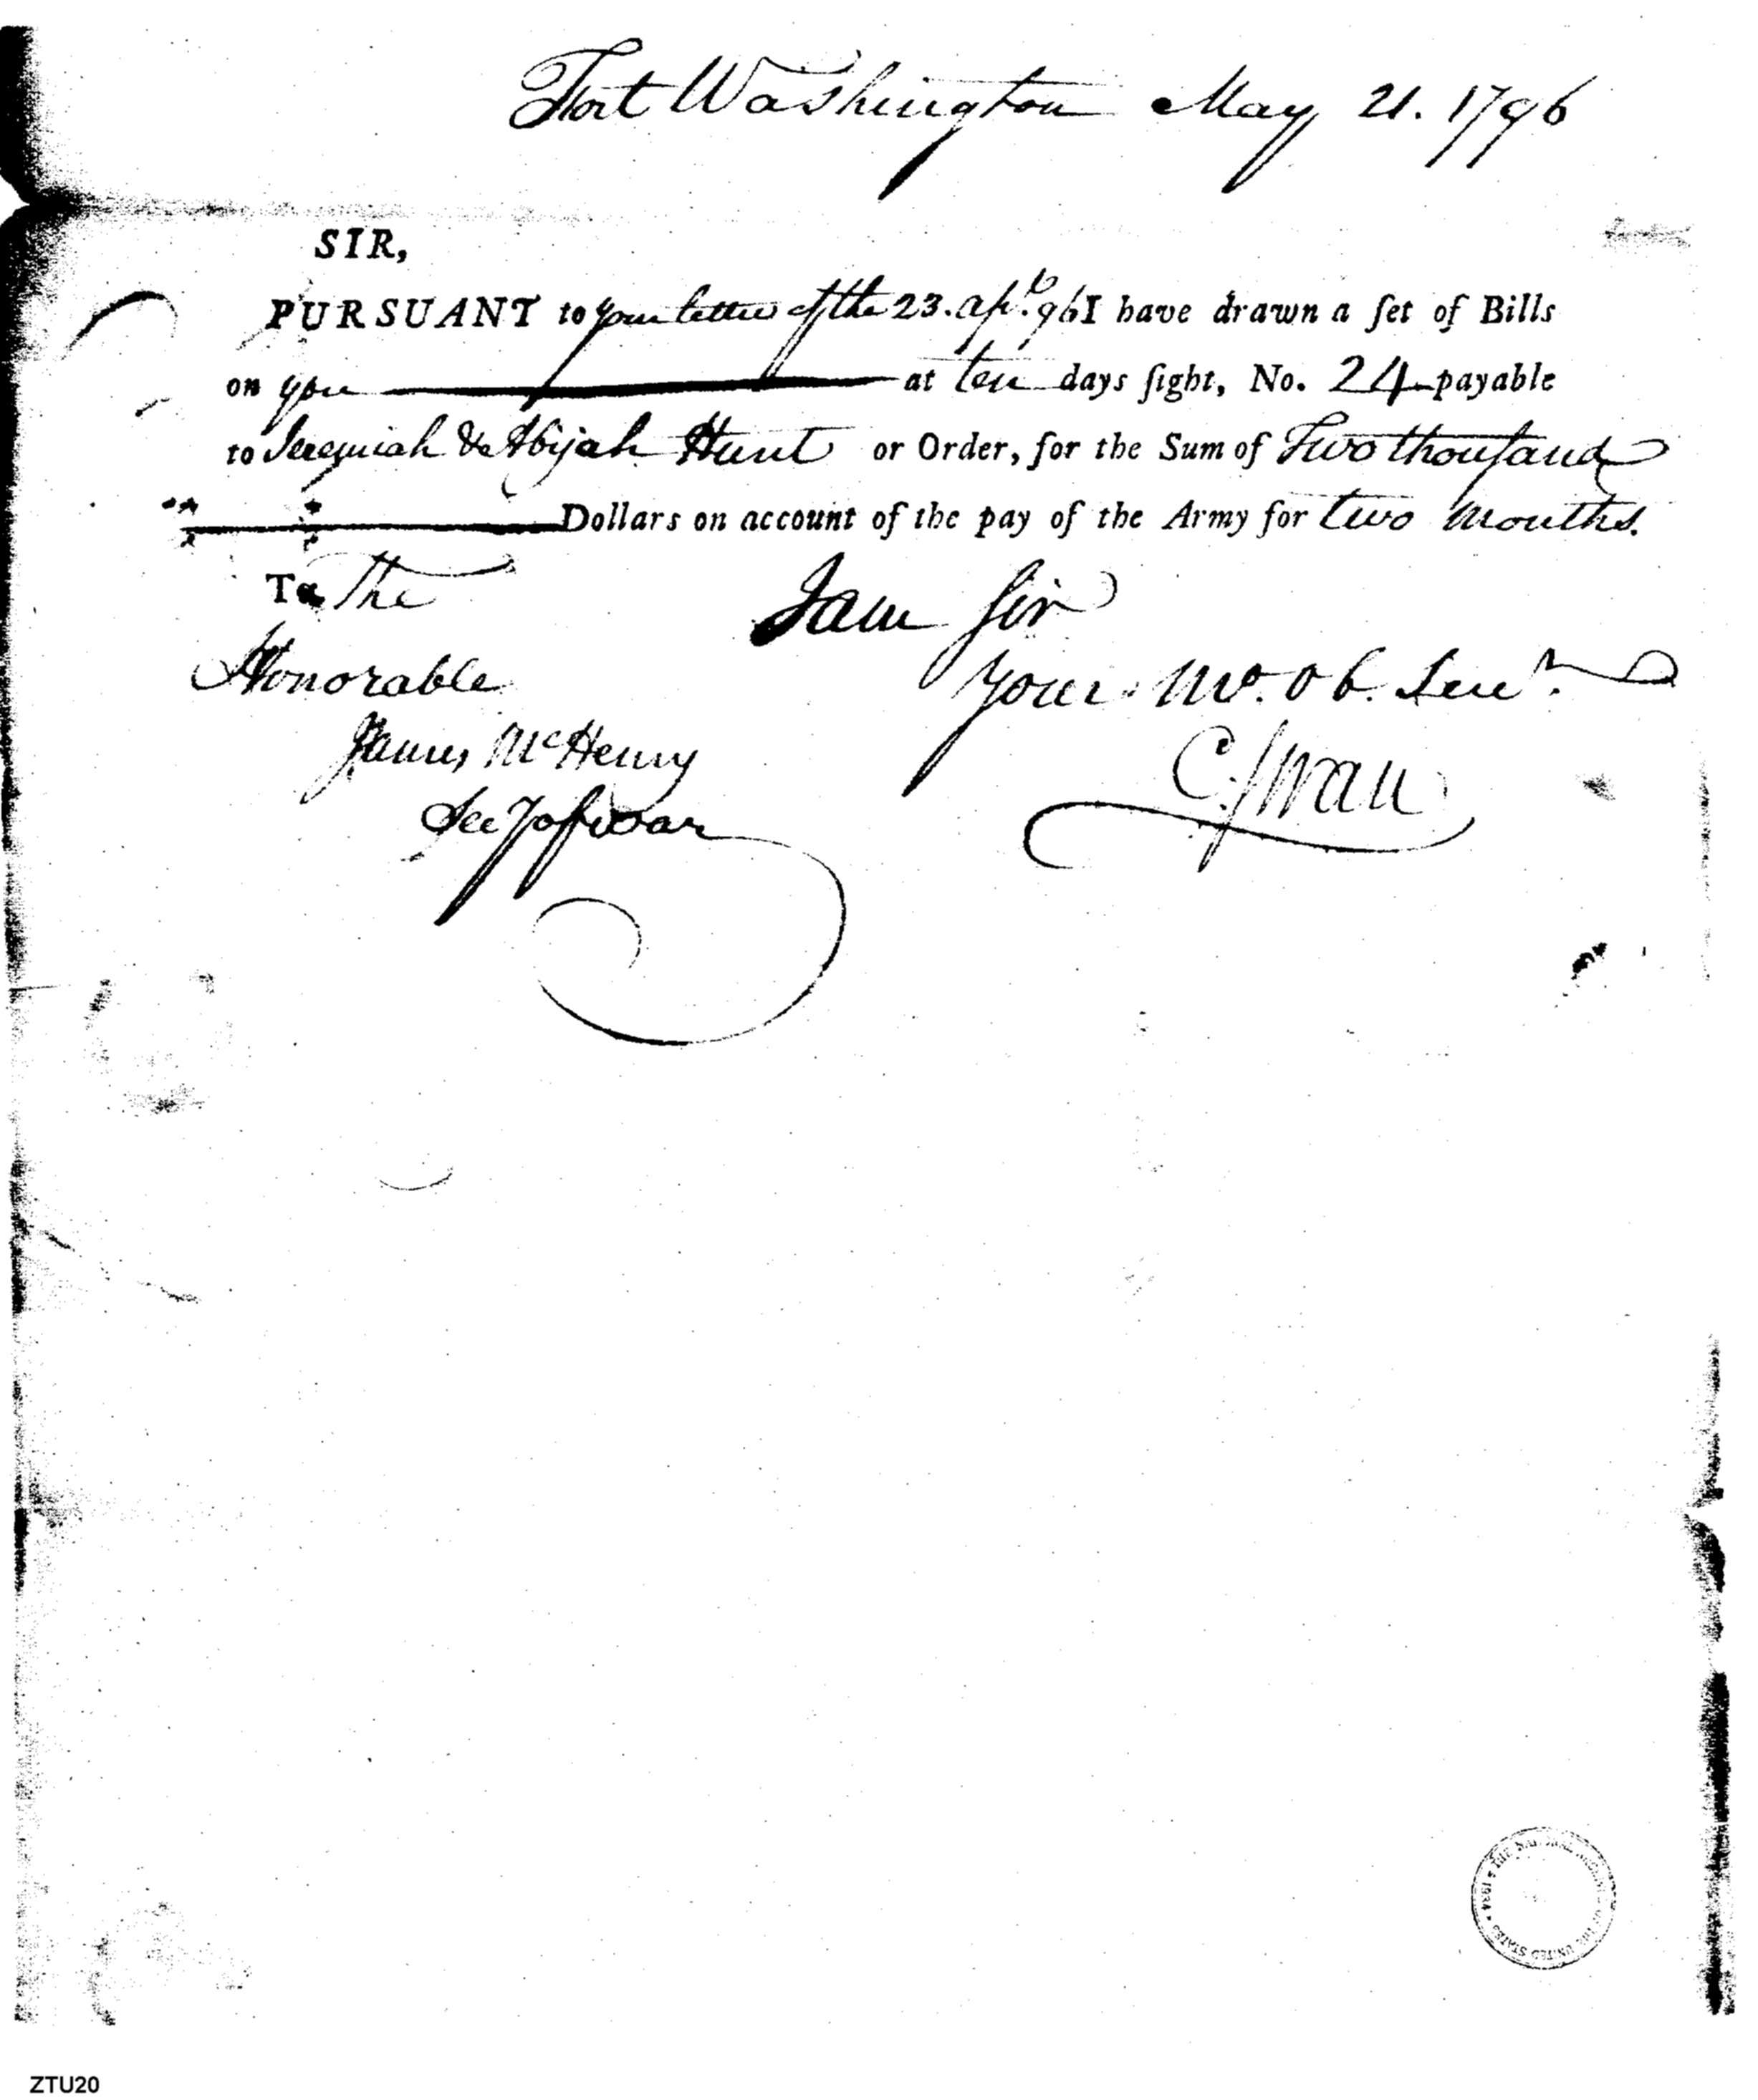 Fort Washington May 21. 1796
SIR,
PURSUANT to your letter of the 23. apl. 96 I have drawn a ſet of Bills
on you at ten days ſight, No. 24 payable
to Jeremiah & Abijah Hunt or Order, for the Sum of Two thouſand
Dollars on account of the pay of the Army for two Months.
To The
Honorable
James McHenry
Secy of war
I am Sir
Your Mo. Ob. Servt.
C. Swan
THE NATIONAL ARCHIVES OF THE UNITED STATES * 1934 *
ZTU20